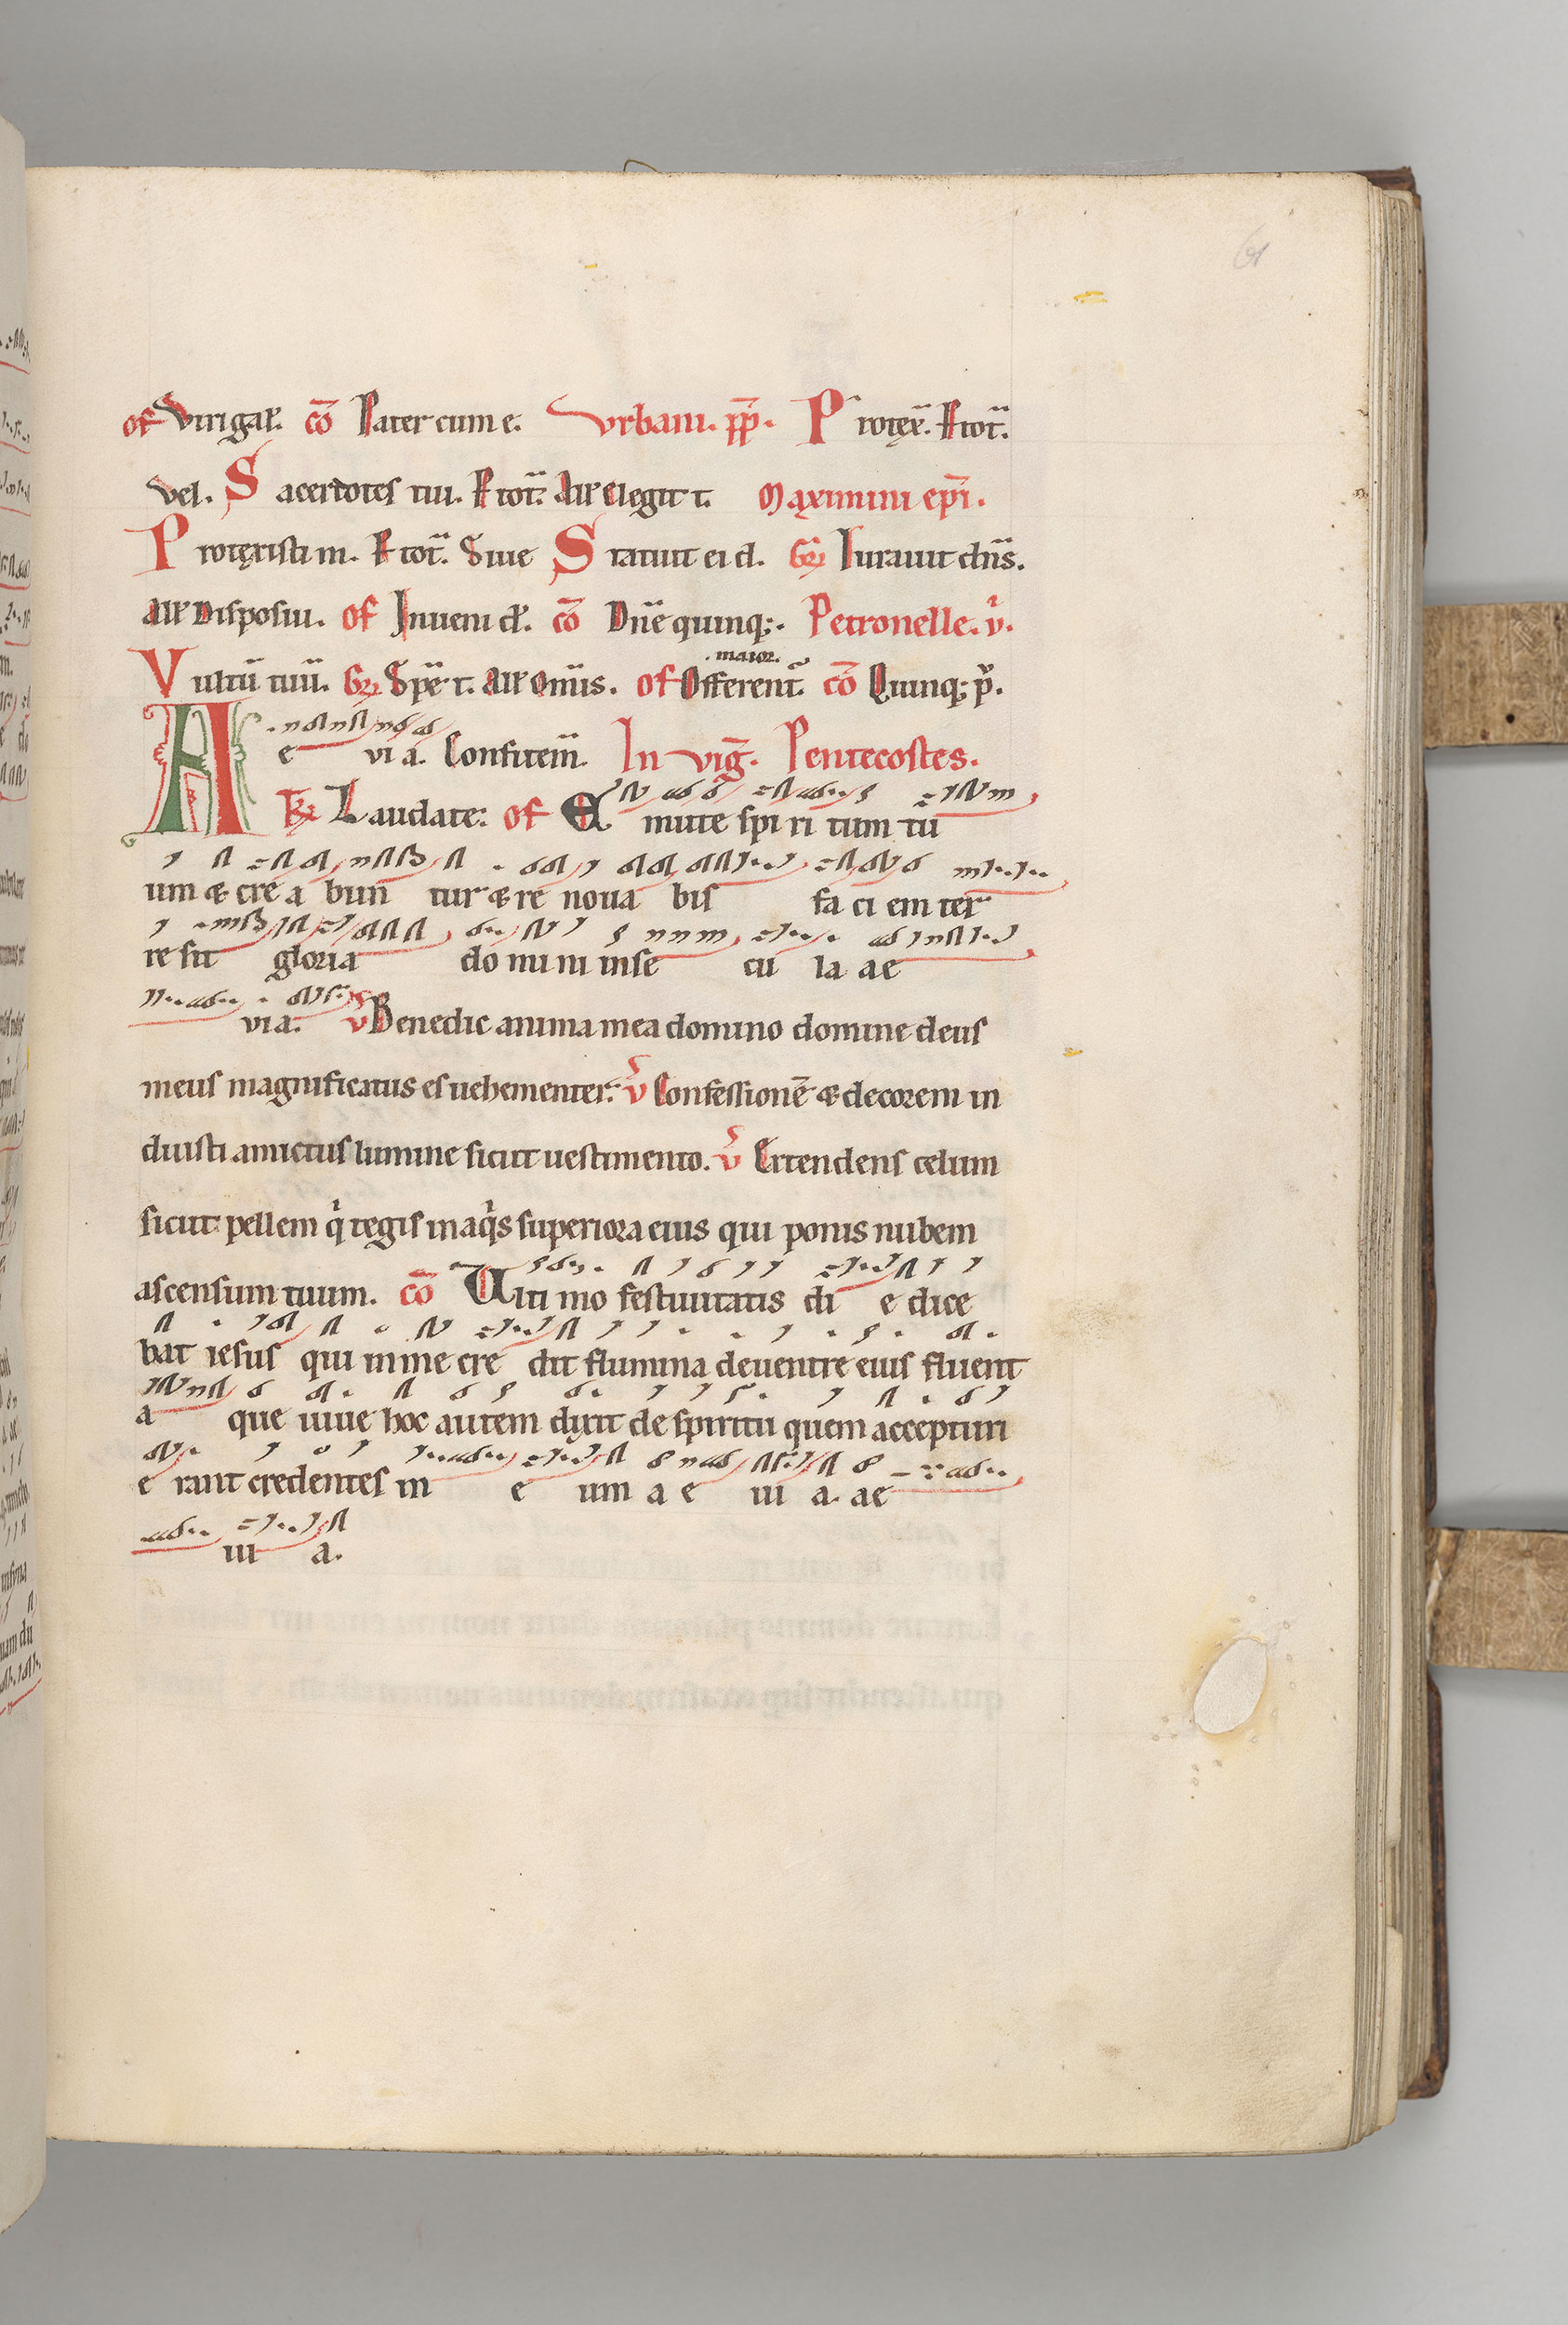 61
of Virigal̄. cō Pater cum e. Vrbani. pp̄. P rotęx̄. R̄ tot̄.
vel. S acerdotes tui. R̄ tot̄. All̄e Elegit t. Maximini ep̄i.
P rotęxisti m. R̄ tot̄. Siue S tatuit ei d. Gr̄ Iurauit dn̄s.
All̄e Disposui. of Inueni d̄. cō Dn̄e quinq;. Petronelle. v̄.
maior.
V ultū tuū. Gr̄ Spē t. All̄e Om̄is. of Offerent̄. cō Quinq; p̄.
A e vi a. Confitem̄. In vig̅. Pentecostes.
Tr̄ Laudate: of E mitte spi ri tum tu
um & cre a bun tur & re noua bis fa ci em ter
re sit gloria do mi ni in se cu la ae
vi a. v̄ Benedic anima mea domino domine deus
meus magnificatus es uehementer. v̄ Confessionē & decorem in
duisti amictus lumine sicut uestimento. v̄ Extendens celum
sicut pellem q̄ tegis in aq̄s superiora eius qui ponis nubem
ascensum tuum. cō Ulti mo festiuitatis di e dice
bat iesus qui in me cre dit flumina de uentre eius fluent
a que uiue hoc autem dixit de spiritu quem accepturi
e rant credentes in e um a e ui a. ae
ui a.